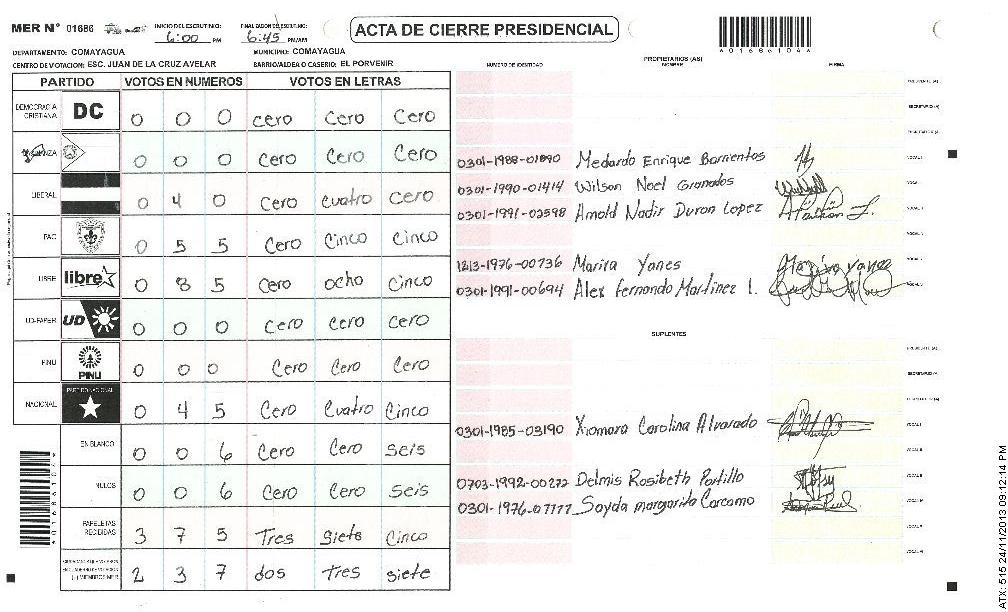 MER N° 01686 INICIO DEL ESCRUTINIO: 6:00 PM FINALIZACION DEL ESCRUTINIO: 6:45 PM/AM ACTA DE CIERRE PRESIDENCIAL
DEPARTAMENTO: COMAYAGUA MUNICIPIO: COMAYAGUA
CENTRO DE VOTACION: ESC. JUAN DE LA CRUZ AVELAR BARRIO/ALDEA O CASERIO: EL PORVENIR
PARTIDO VOTOS EN NUMEROS VOTOS EN LETRAS
DEMOCRACIA CRISTIANA DC 0 0 0 cero Cero Cero
0 0 0 Cero Cero Cero
LIBERAL 0 4 0 Cero Cuatro Cero
PAC 0 5 5 Cero Cinco Cinco
LIBRE libre 0 8 5 Cero ocho Cinco
UD-FAPER UD 0 0 0 Cero Cero Cero
PINU PINU 0 0 0 Cero Cero Cero
NACIONAL PARTIDO NACIONAL 0 4 5 Cero Cuatro Cinco
EN BLANCO 0 0 6 Cero Cero seis
NULOS 0 0 6 Cero Cero seis
PAPELETAS RECIBIDAS 3 7 5 Tres siete Cinco
2 3 7 dos Tres siete
NUMERO DE IDENTIDAD PROPIETARIOS (AS) NOMBRE FIRMA
0301-1988-01090 Medardo Enrique Barrientos
0301-1990-01414 Wilson Noel Granados
0301-1991-02598 Arnold Nadir Duron Lopez
1213-1976-00736 Marira Yanes
0301-1991-00694 Alex Fernando Martinez L.
SUPLENTES
0301-1985-03190 Xiomara Carolina Alvarado
0703-1992-00272 Delmis Rosibeth Portillo
0301-1976-07777 Soyda margarita Carcamo
ATX: 515 24/11/2013 09:12:14 PM